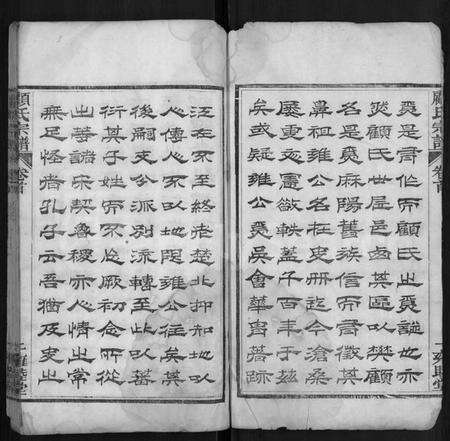 顧氏宗譜 卷首
爲是書作而顧氏之爲譜也亦
顧氏世邑其區以樊顧
名是爲麻陽舊族信而書徵其
鼻祖雍公名在史冊迄今滄桑
屢更軼蓋千百年于
矣或疑雍公爲吳會華裔蕃跡
江左而至終老楚北抑知地以
人傳人不以地限雍公往矣其
後嗣支分派別流轉至此以蕃
衍其子姓而不忘厥初念所從
出諸宋契魯稷亦人情之常
無足怪者孔子云吾猶及史之
顧氏宗譜 卷首